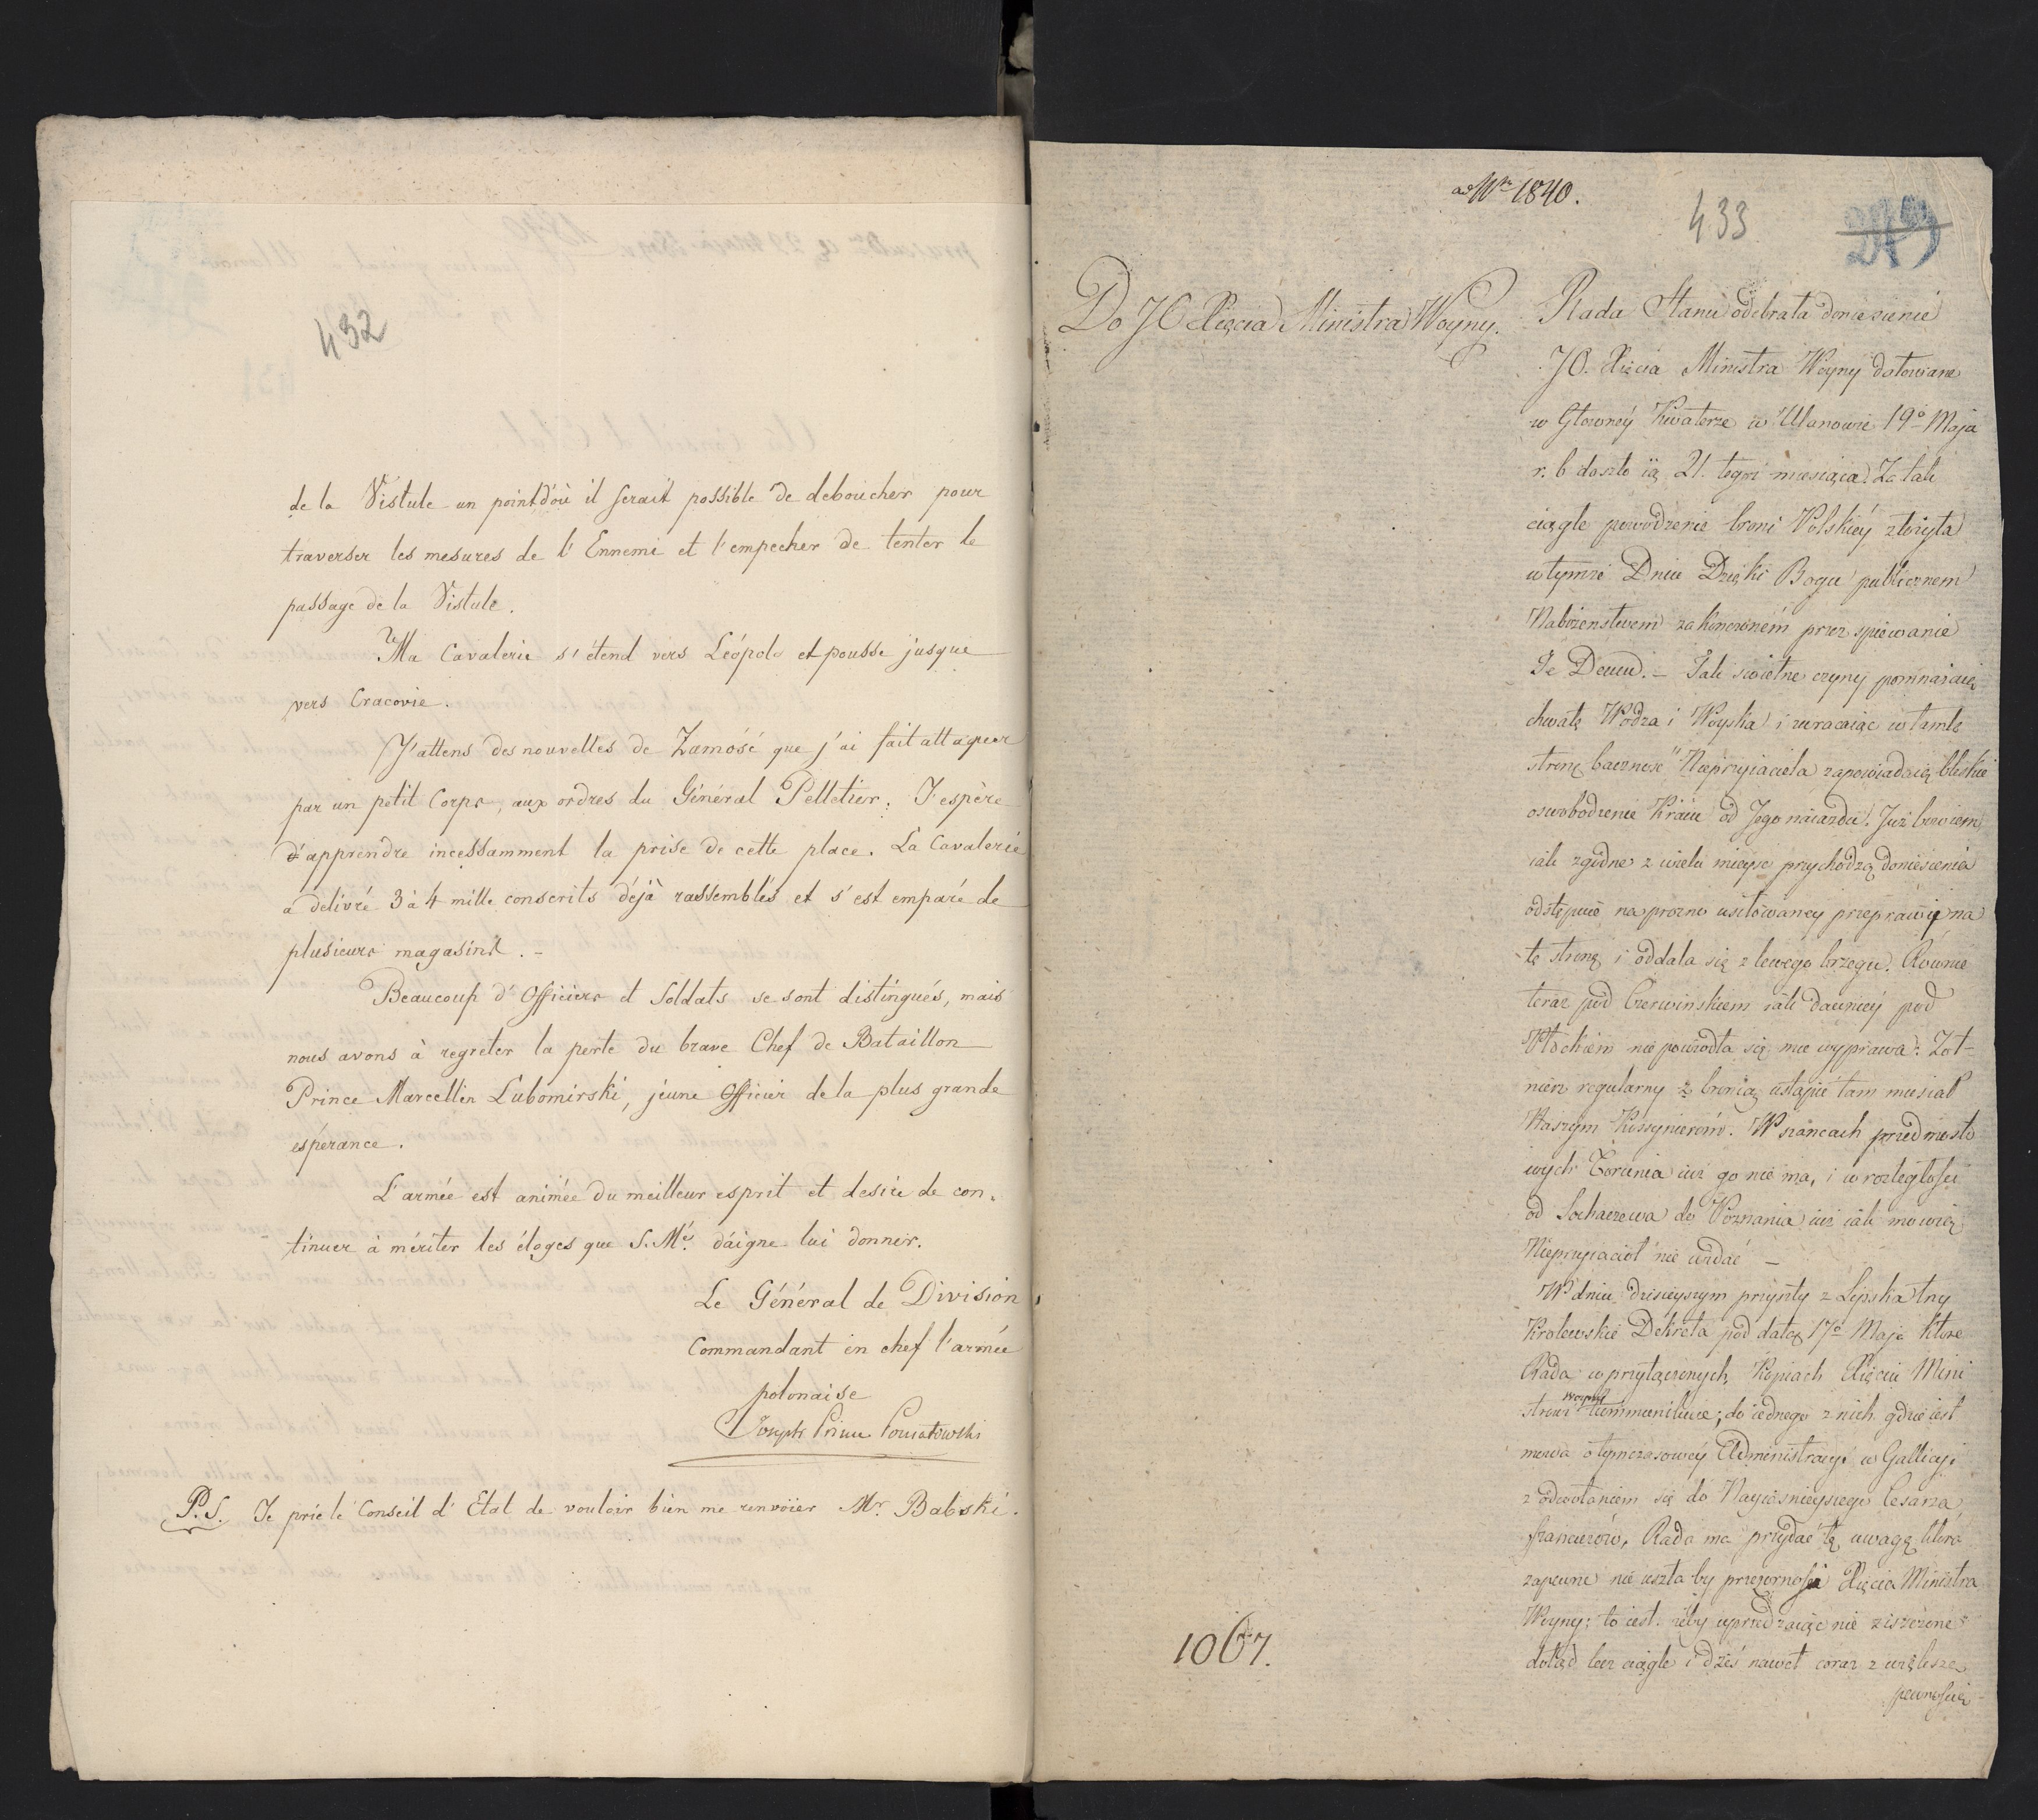 432
de la Vistule un point d'où il serait possible de deboucher pour
traverser les mesures de l'Ennemi et l'empecher de tenter le
passage de la Vistule.
Ma Cavalerie s'étend vers Léopol et pousse jusque
vers Cracovie.
J'attens des nouvelles de Zamość que j'ai fait attaquer
par un petit Corps, aux ordres du Général Pelletier; J'espère
d'apprendre incessamment la prise de cette place. La Cavalerie
a delivré 3 à 4 mille conscrits déjà rassemblés et s'est emparé de
plusieurs magasins. -
Beaucoup d'Officiers et Soldats se sont distingués, mais
nous avons à regreter la perte du brave Chef de Bataillon
Prince Marcellin Lubomirski, jeune Officier de la plus grande
espérance.
L'armée est animée du meilleur esprit et desire de con-
tinuer à mériter les éloges que S. Mté. daigne lui donner.
Le Général de Division
Commandant en chef l'armée
polonaise
Joseph Prince Poniatowski
P.S. Je prie le Conseil d'Etat de vouloir bien me renvoïer Mr. Babski.
ad Nr 1840.
433
Do JO Xięcia Ministra Woyny.
Rada Stanu odebrała doniesienie
JO. Xięcia Ministra Woyny datowane
w Główney Kwaterze w Ulanowie 19o Maja
r. b doszło ią 21. tegoż miesiąca. Za tak
ciągłe powodzenie broni Polskiéy złożyła
w tymże Dniu Dzięki Bogu publicznem
Nabożenstwem zakończoném przez spiewanie
Te Deum. - Tak świetne czyny pomnażaią
chwałę Wodza i Woyska i zwracaiąc w tamtę
stronę baczność Nieprzyiaciela zapowiadaią bliskie
oswobodzenie Kraiu od Jego naiazdu. Już bowiem
iak zgodne z wielu mieysc przychodzą doniesienia
odstępuie na prozno usiłowaney przeprawy na
tę stronę i oddala się z lewego brzegu. Równie
teraz pod Czerwinskiem iak dawniey pod
Płockiem nie powiodła się mu wyprawa: Żoł-
nierz regularny z bronią ustąpić tam musiał
Naszym Kossynierom. W szańcach przedmosto
wych Torunia iuż go nie ma, i w rozległości
od Sochaczewa do Poznania iuż iak mowią
Nieprzyiaciół nie widać -
W dniu dzisieyszym przyszły z Lipska trzy
Krolewskie Dekreta pod datą 17o Maja które
Rada w przyłączonych Kopiach Xięciu Mini
strowi Woyny kommunikuie; do iednego z nich gdzie iest
mowa o tymczasowey Administracyi w Gallicyi
z odwołaniem się do Nayiaśnieyszego Cesarza
francuzów, Rada ma przydać tę uwagę która
zapewne nie uszła by przezorności Xięcia Ministra
Woyny: to iest. żeby uprzedzaiąc nie ziszczone
dotąd lecz ciągle i dziś nawet coraz z większą
pewnością
1067.